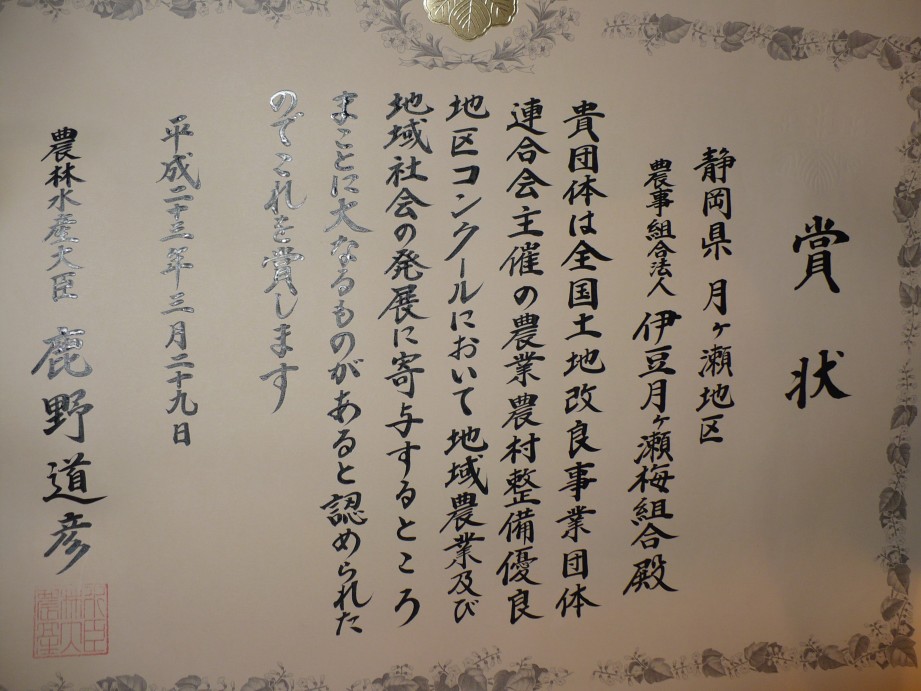 賞状
静岡県 月ヶ瀬地区
農事組合法人 伊豆月ヶ瀬梅組合殿
貴団体は全国土地改良事業団体
連合会主催の農業農村整備優良
地区コンクールにおいて地域農業及び
地域社会の発展に寄与するところ
まことに大なるものがあると認められた
のでこれを賞します
平成二十三年三月二十九日
農林水産大臣 鹿野道彦